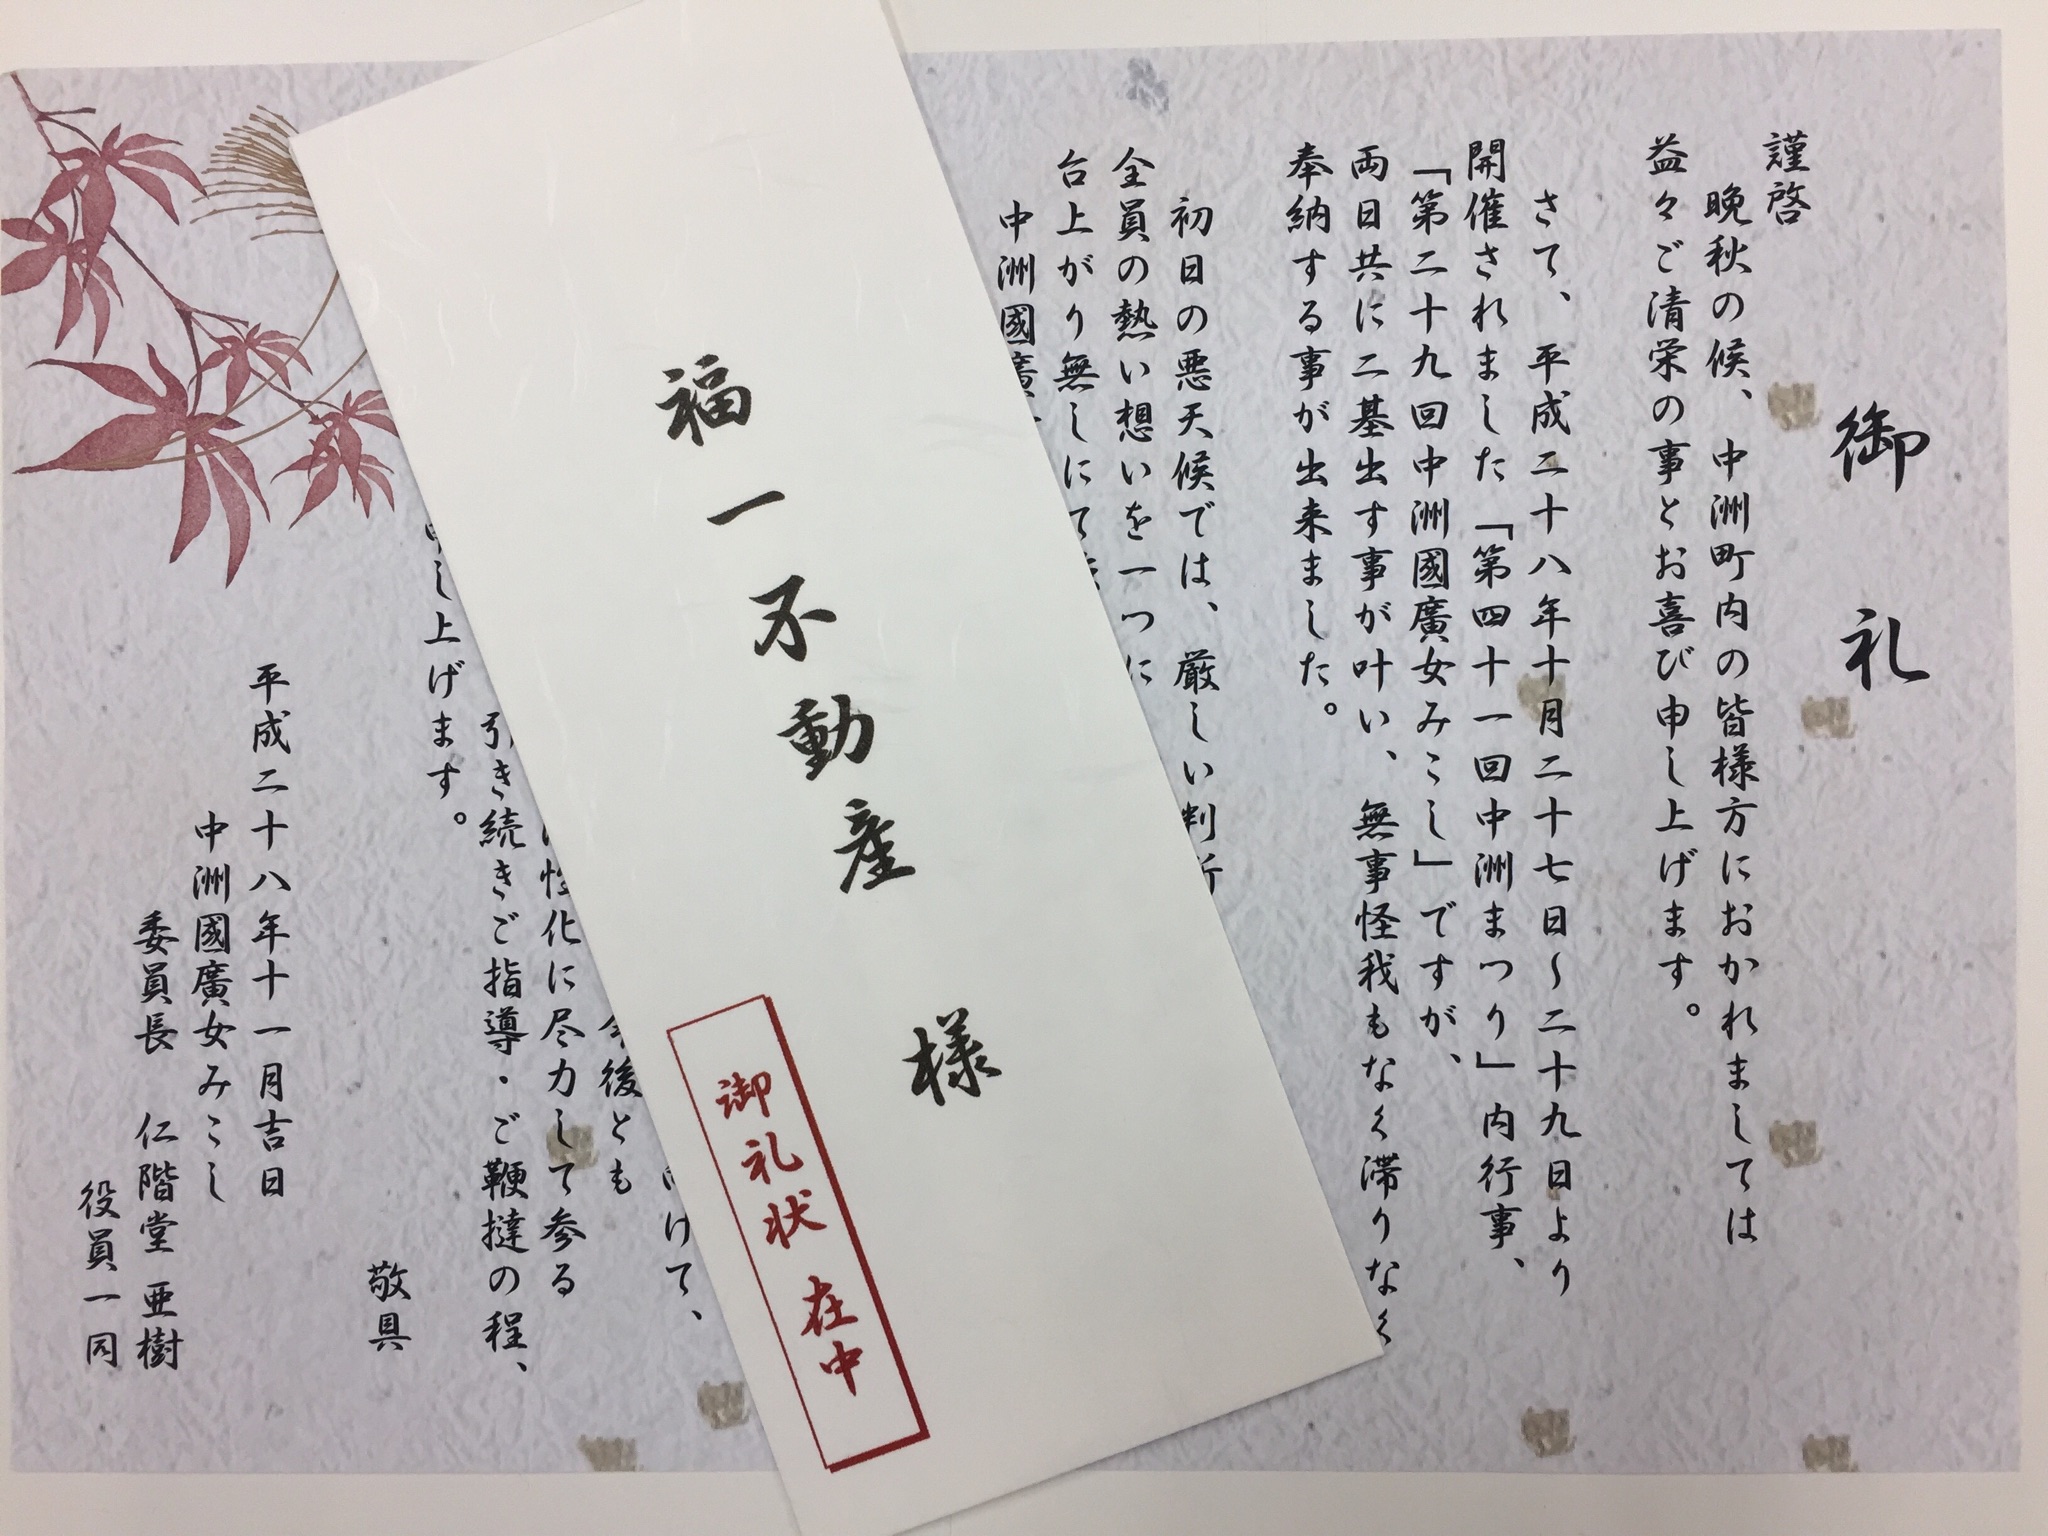 御礼
謹啓
晩秋の候、中洲町内の皆様方におかれましては
益々ご清栄の事とお喜び申し上げます。
さて、平成二十八年十月二十七日～二十九日より
開催されました「第四十一回中洲まつり」内行事、
「第二十九回中洲國廣女みこし」ですが、
両日共に二基出す事が叶い、無事怪我もなく滞りなく
奉納する事が出来ました。
初日の悪天候では、厳しい判
全員の熱い想いを一つに
台上がり無しにて
中洲國廣
けて、
今後とも
性化に尽力して参る
引き続きご指導・ご鞭撻の程、
申し上げます。
敬具
平成二十八年十一月吉日
中洲國廣女みこし
委員長 仁階堂 亜樹
役員一同
福一不動産 様
御礼状 在中